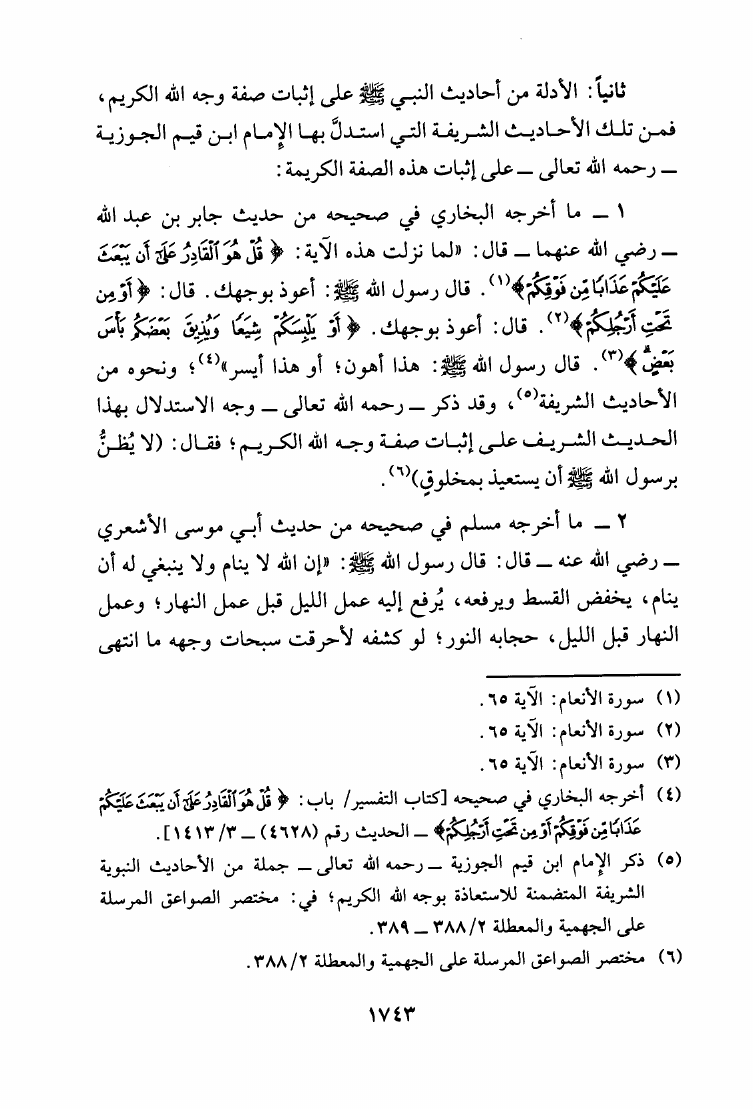 ثانياً: الأدلة من أحاديث النبي ﷺ على إثبات صفة وجه الله الكريم،
فمن تلك الأحاديث الشريفة التي استدلَّ بها الإمام ابن قيم الجوزية
ــ رحمه الله تعالى ــ على إثبات هذه الصفة الكريمة:
١ ــ ما أخرجه البخاري في صحيحه من حديث جابر بن عبد الله
ــ رضي الله عنهما ــ قال: «لما نزلت هذه الآية: ﴿قُلْ هُوَ ٱلْقَادِرُ عَلَىٰٓ أَن يَبْعَثَ
عَلَيْكُمْ عَذَابًا مِّن فَوْقِكُمْ﴾(١). قال رسول الله ﷺ: أعوذ بوجهك. قال: ﴿أَوْ مِن
تَحْتِ أَرْجُلِكُمْ﴾(٢). قال: أعوذ بوجهك. ﴿أَوْ يَلْبِسَكُمْ شِيَعًا وَيُذِيقَ بَعْضَكُم بَأْسَ
بَعْضٍۗ﴾(٣). قال رسول الله ﷺ: هذا أهون؛ أو هذا أيسر»(٤)؛ ونحوه من
الأحاديث الشريفة(٥)، وقد ذكر ــ رحمه الله تعالى ــ وجه الاستدلال بهذا
الحديث الشريف على إثبات صفة وجه الله الكريم؛ فقال: (لا يُظنُّ
برسول الله ﷺ أن يستعيذ بمخلوقٍ)(٦).
٢ ــ ما أخرجه مسلم في صحيحه من حديث أبي موسى الأشعري
ــ رضي الله عنه ــ قال: قال رسول الله ﷺ: «إن الله لا ينام ولا ينبغي له أن
ينام، يخفض القسط ويرفعه، يُرفع إليه عمل الليل قبل عمل النهار؛ وعمل
النهار قبل الليل، حجابه النور؛ لو كشفه لأحرقت سبحات وجهه ما انتهى
(١) سورة الأنعام: الآية ٦٥.
(٢) سورة الأنعام: الآية ٦٥.
(٣) سورة الأنعام: الآية ٦٥.
(٤) أخرجه البخاري في صحيحه [كتاب التفسير/ باب: ﴿قُلْ هُوَ ٱلْقَادِرُ عَلَىٰٓ أَن يَبْعَثَ عَلَيْكُمْ
عَذَابًا مِّن فَوْقِكُمْ أَوْ مِن تَحْتِ أَرْجُلِكُمْ﴾ ــ الحديث رقم (٤٦٢٨) ــ ٣/ ١٤١٣].
(٥) ذكر الإمام ابن قيم الجوزية ــ رحمه الله تعالى ــ جملة من الأحاديث النبوية
الشريفة المتضمنة للاستعاذة بوجه الله الكريم؛ في: مختصر الصواعق المرسلة
على الجهمية والمعطلة ٢/ ٣٨٨ ــ ٣٨٩.
(٦) مختصر الصواعق المرسلة على الجهمية والمعطلة ٢/ ٣٨٨.
١٧٤٣